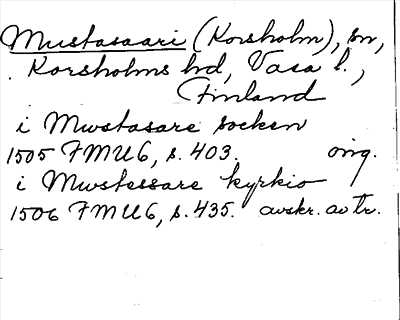 Mustasaari (Korsholm), sn,
Korsholms hd, Vasa l.,
Finland
i Mwstasare socken
1505 FMU6, s. 403. orig.
i Mwstessare kyrkio
1506 FMU6, s. 435. avskr. av tr.